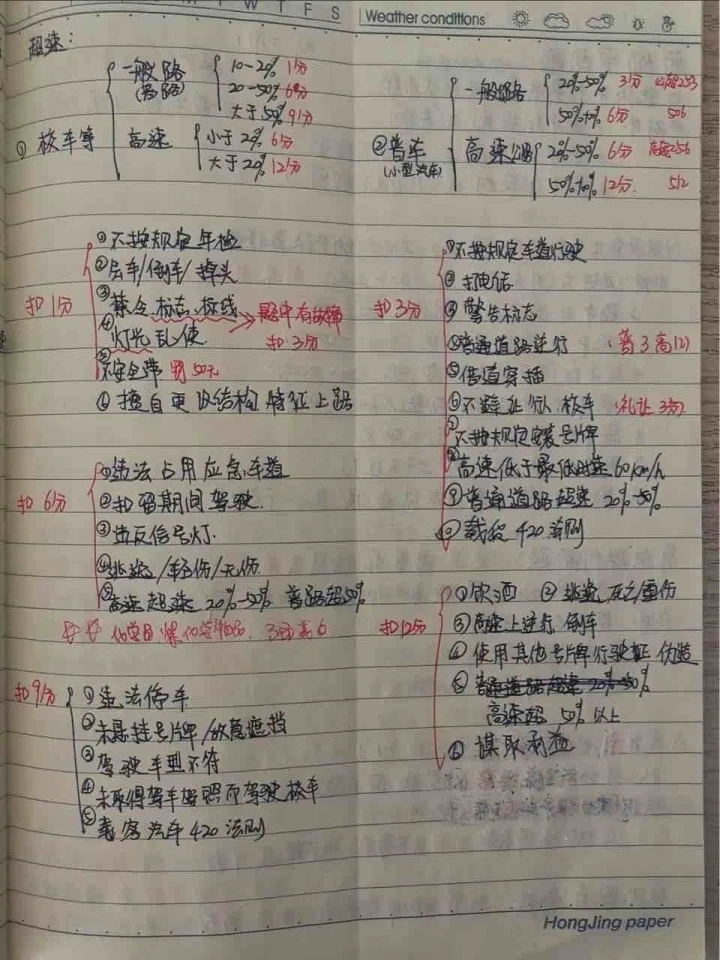 M T W T F S
Weather conditions
超速:
① 校车等
一般路
(普路)
10-20% 1分
20-50% 6分
大于50% 9分
高速
小于20% 6分
大于20% 12分
② 普车
(小型汽车)
一般路
20%-50% 3分
50%↑ 6分 506
高速公路
20%-50% 6分 高速256
50%↑ 12分. 512
扣1分
①不按规定年检
②会车/倒车/掉头
③禁令.标志.标线
④灯光乱使 → 路中有故障
扣3分
⑤不安全带 罚50元
⑥擅自更改结构 特征上路
扣3分
①不按规定车道行驶
②打电话
③警告标志
④普通道路逆行 (普3高12)
⑤借道穿插
⑥不避让行人.校车 (礼让3分)
⑦不按规定安装号牌
⑧高速低于最低时速60km/h
⑨普通道路超速 20%-50%
⑩载货 420法则
扣6分
①违法占用应急车道
②扣留期间驾驶.
③违反信号灯.
④逃逸/轻伤/无伤
⑤高速超速 20%-50% 普路超50%
扣12分
①饮酒 ②逃逸 死亡重伤
③高速上逆行 倒车
④使用其他号牌行驶证 伪造
⑤普通道路超速 20%-50%
高速超 50%以上
⑥谋取利益
扣9分
①违法停车
②未悬挂号牌/故意遮挡
③驾驶车型不符
④未取得驾车驾照而驾驶校车
⑤载客汽车420法则
HongJing paper